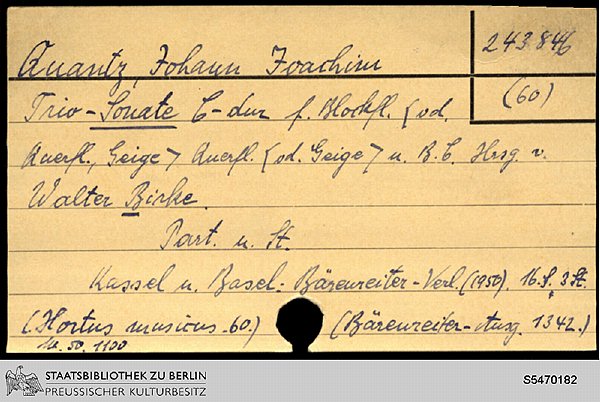 Quantz, Johann Joachim
243846
(60)
Trio-Sonate C-dur f. Blockfl. <od.
Querfl., Geige> Querfl. <od. Geige> u. B.C. Hrsg. v.
Walter Birke.
Part. u. St.
Kassel u. Basel: Bärenreiter-Verl. (1950). 16 S., 3 St.
(Hortus musicus. 60.) (Bärenreiter-Ausg. 1342.)
50. 1100
STAATSBIBLIOTHEK ZU BERLIN
PREUSSISCHER KULTURBESITZ
S5470182